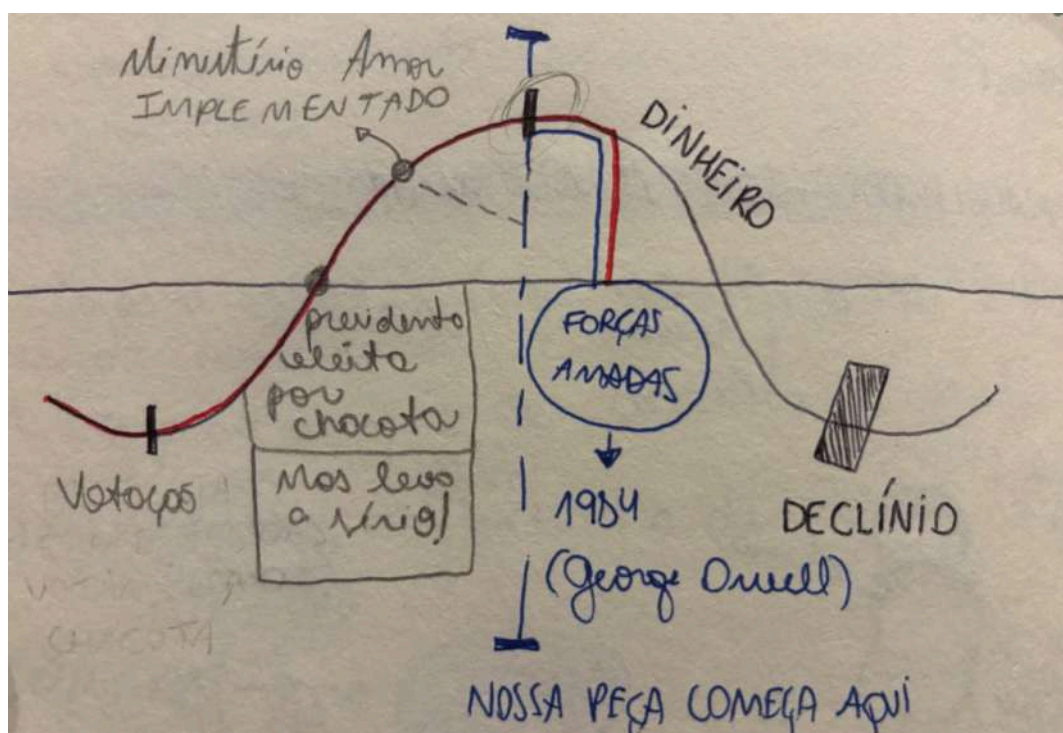 Ministério Amor
IMPLEMENTADO
DINHEIRO
presidenta
eleita
por
chacota
Mas levo
a sério!
Votação
FORÇAS
AMADAS
1984
(George Orwell)
DECLÍNIO
CHACOTA
NOSSA PEÇA COMEÇA AQUI